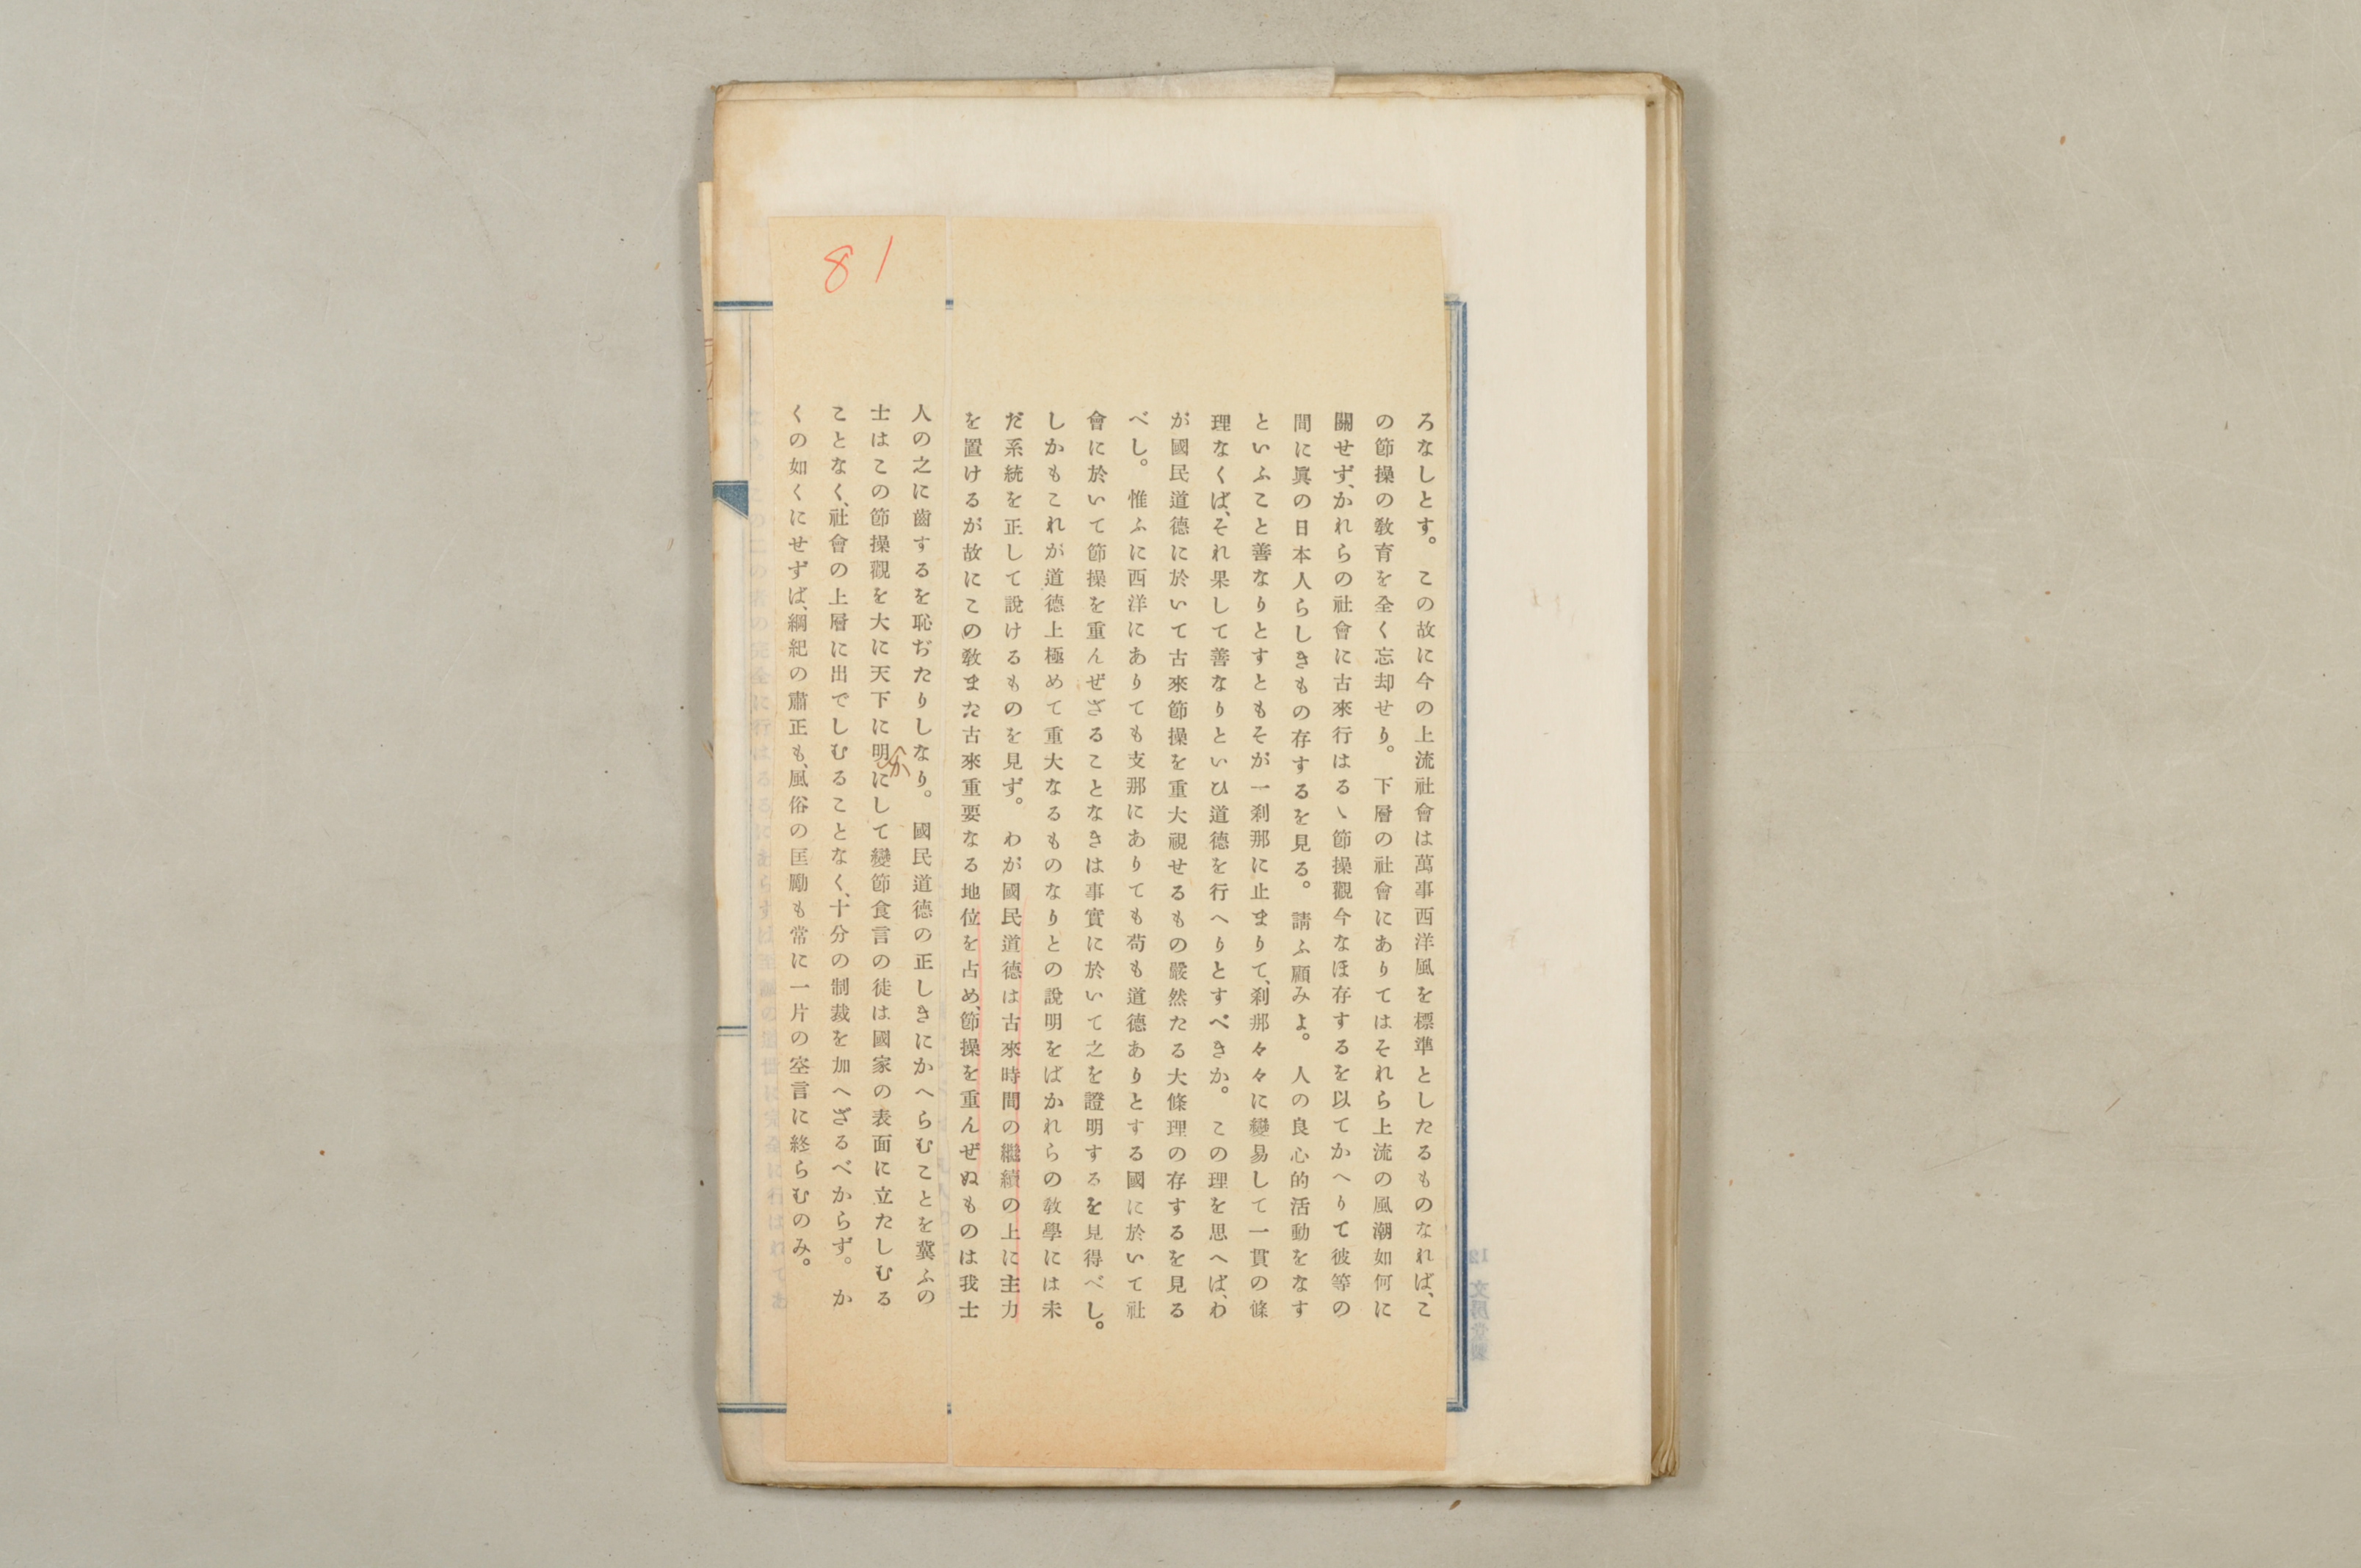 ろなしとす。この故に今の上流社會は萬事西洋風を標準としたるものなれば、こ
の節操の敎育を全く忘却せり。下層の社會にありてはそれら上流の風潮如何に
關せず、かれらの社會に古來行はるゝ節操觀今なほ存するを以てかへりて彼等の
間に眞の日本人らしきもの存するを見る。請ふ顧みよ。人の良心的活動をなす
といふこと善なりとすともそが一刹那に止まりて、刹那々々に變易して一貫の條
理なくば、それ果して善なりといひ道德を行へりとすべきか。この理を思へば、わ
が國民道德に於いて古來節操を重大視せるもの嚴然たる大條理の存するを見る
べし。惟ふに西洋にありても支那にありても苟も道德ありとする國に於いて社
會に於いて節操を重んぜざることなきは事實に於いて之を證明するを見得べし。
しかもこれが道德上極めて重大なるものなりとの說明をばかれらの敎學には未
だ系統を正して說けるものを見ず。わが國民道德は古來時間の繼續の上に主力
を置けるが故にこの敎また古來重要なる地位を占め、節操を重んぜぬものは我士
人の之に齒するを恥ぢたりしなり。國民道德の正しきにかへらむことを冀ふの
士はこの節操觀を大に天下に明かにして變節食言の徒は國家の表面に立たしむる
ことなく、社會の上層に出でしむることなく、十分の制裁を加へざるべからず。か
くの如くにせずば、綱紀の肅正も、風俗の匡勵も常に一片の空言に終らむのみ。
81
12 文房堂製